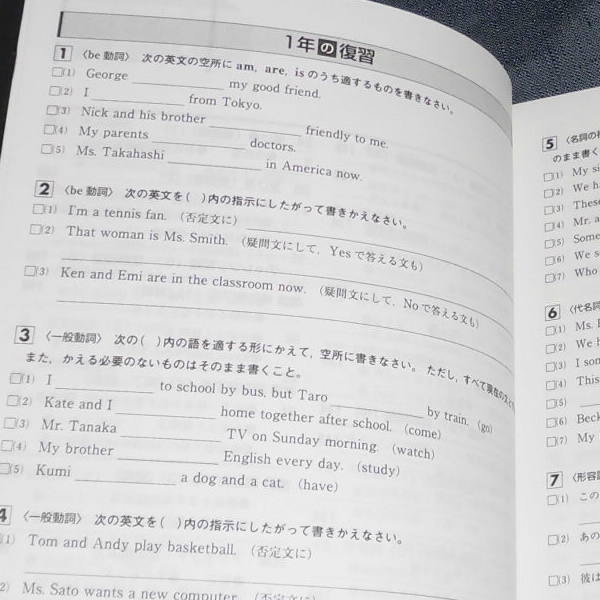 1年の復習
1 〈be動詞〉 次の英文の空所に am, are, is のうち適するものを書きなさい。
□(1) George ______ my good friend.
□(2) I ______ from Tokyo.
□(3) Nick and his brother ______ friendly to me.
□(4) My parents ______ doctors.
□(5) Ms. Takahashi ______ in America now.
2 〈be動詞〉 次の英文を( )内の指示にしたがって書きかえなさい。
□(1) I'm a tennis fan. (否定文に)
□(2) That woman is Ms. Smith. (疑問文にして, Yesで答える文も)
□(3) Ken and Emi are in the classroom now. (疑問文にして, Noで答える文も)
3 〈一般動詞〉 次の( )内の語を適する形にかえて, 空所に書きなさい。ただし, すべて現在の文
また, かえる必要のないものはそのまま書くこと。
□(1) I ______ to school by bus, but Taro ______ by train. (go)
□(2) Kate and I ______ home together after school. (come)
□(3) Mr. Tanaka ______ TV on Sunday morning. (watch)
□(4) My brother ______ English every day. (study)
□(5) Kumi ______ a dog and a cat. (have)
4 〈一般動詞〉 次の英文を( )内の指示にしたがって書きかえなさい。
(1) Tom and Andy play basketball. (否定文に)
2) Ms. Sato wants a new computer. (否定文に)
5 〈名詞の
のまま書く
□(1) My si
□(2) We h
□(3) These
□(4) Mr. a
□(5) Some
□(6) We s
□(7) Who
6 〈代名詞
□(1) Ms. 
□(2) We h
□(3) I som
□(4) This
□(5)
□(6) Beck
□(7) My
7 〈形容詞
□(1) この
□(2) あの
□(3) 彼は